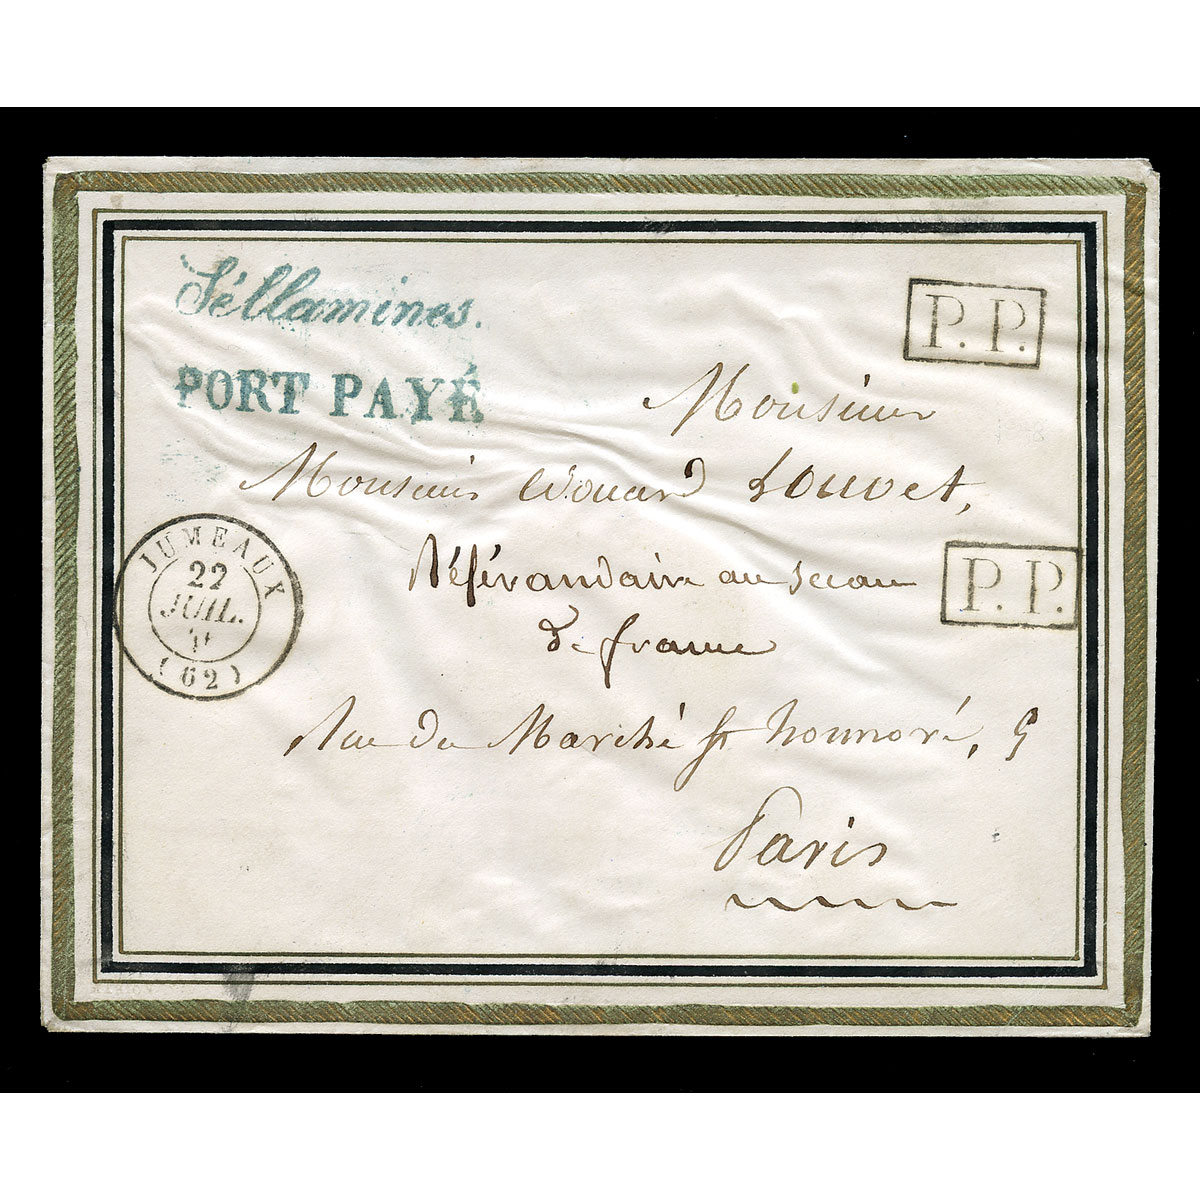 Séllamines.
PORT PAYÉ
P. P.
Monsieur
Monsieur Edouard Louvet,
Référandaire au sceau
de france
Rue du Marché St honnoré, 9
Paris
P. P.
JUMEAUX
22
JUIL.
(62)